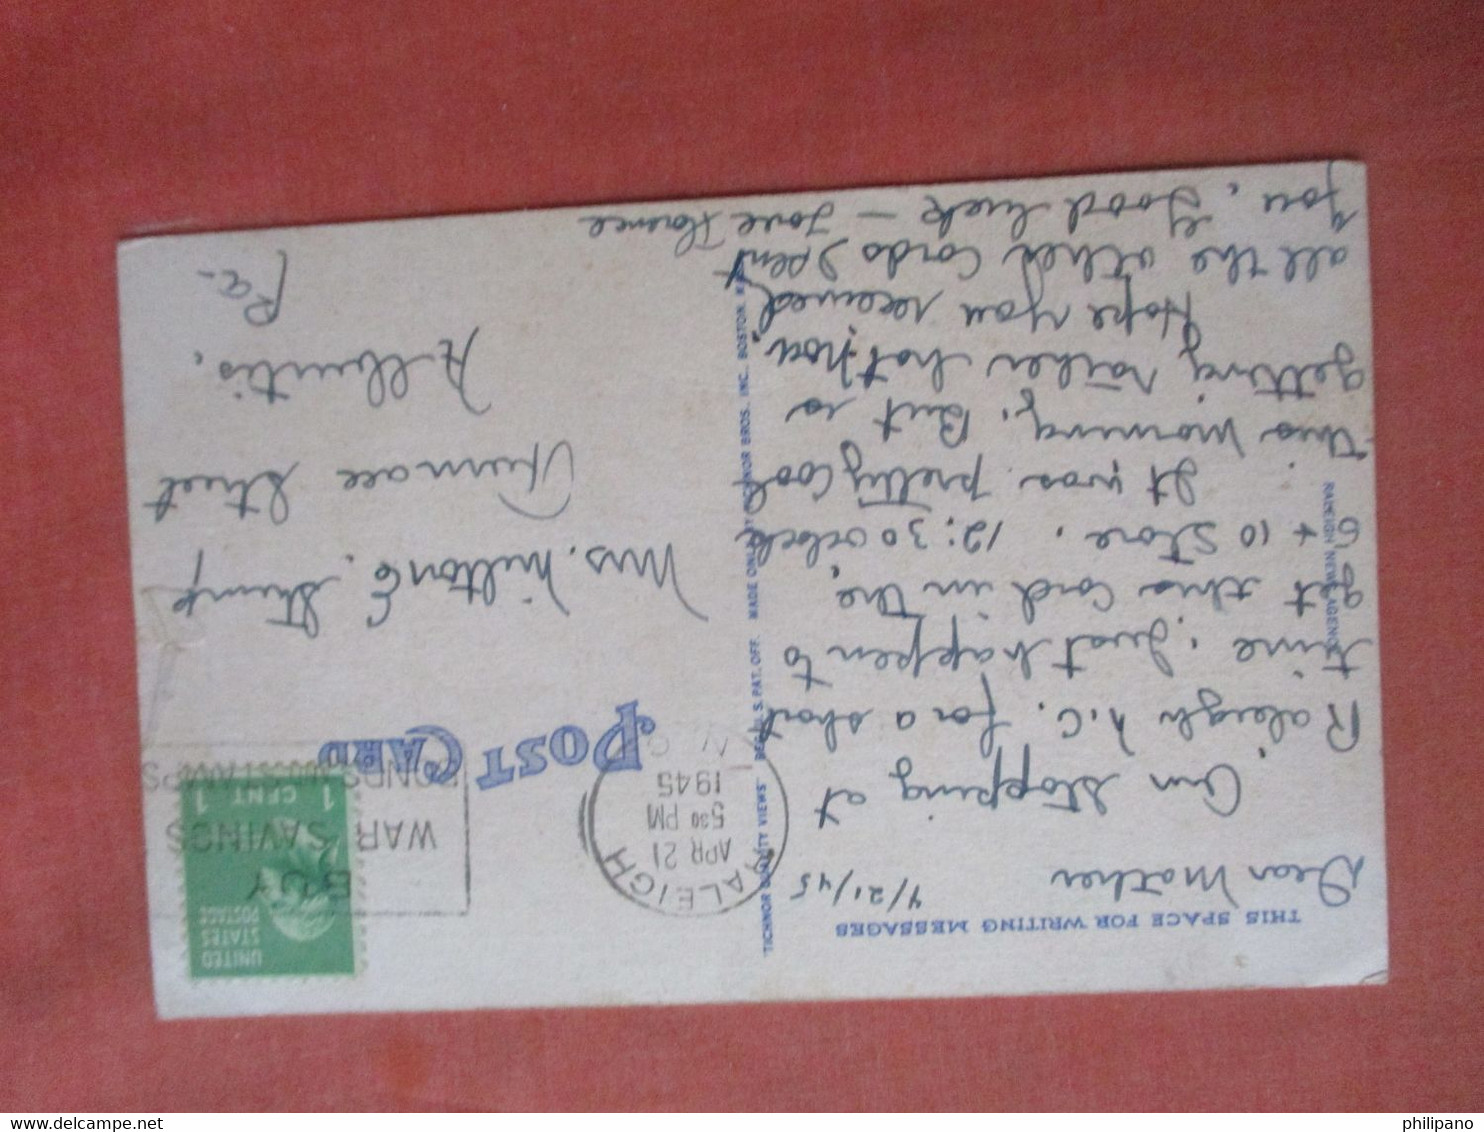 THIS SPACE FOR WRITING MESSAGES
Dear Mother 4/21/45
Am stopping at
Raleigh N.C. for a short
time. Just happen to
get this card in the
5 + 10 Store. 12:30 oclock
It was pretty cool
this morning. But is
getting rather hot now.
Hope you received
all the other cards I sent
you. Good luck — Love Florence
RALEIGH NEWS AGENCY
"TICHNOR QUALITY VIEWS" REG. U. S. PAT. OFF. MADE ONLY BY TICHNOR BROS. INC. BOSTON
RALEIGH
APR 21
5 30 PM
1945
N. C.
BUY
WAR SAVINGS
BONDS AND STAMPS
UNITED
STATES
POSTAGE
1 CENT 1
POST CARD
Mrs. Milton E. Stump
Furnace Street
Alburtis,
Pa-
philipano